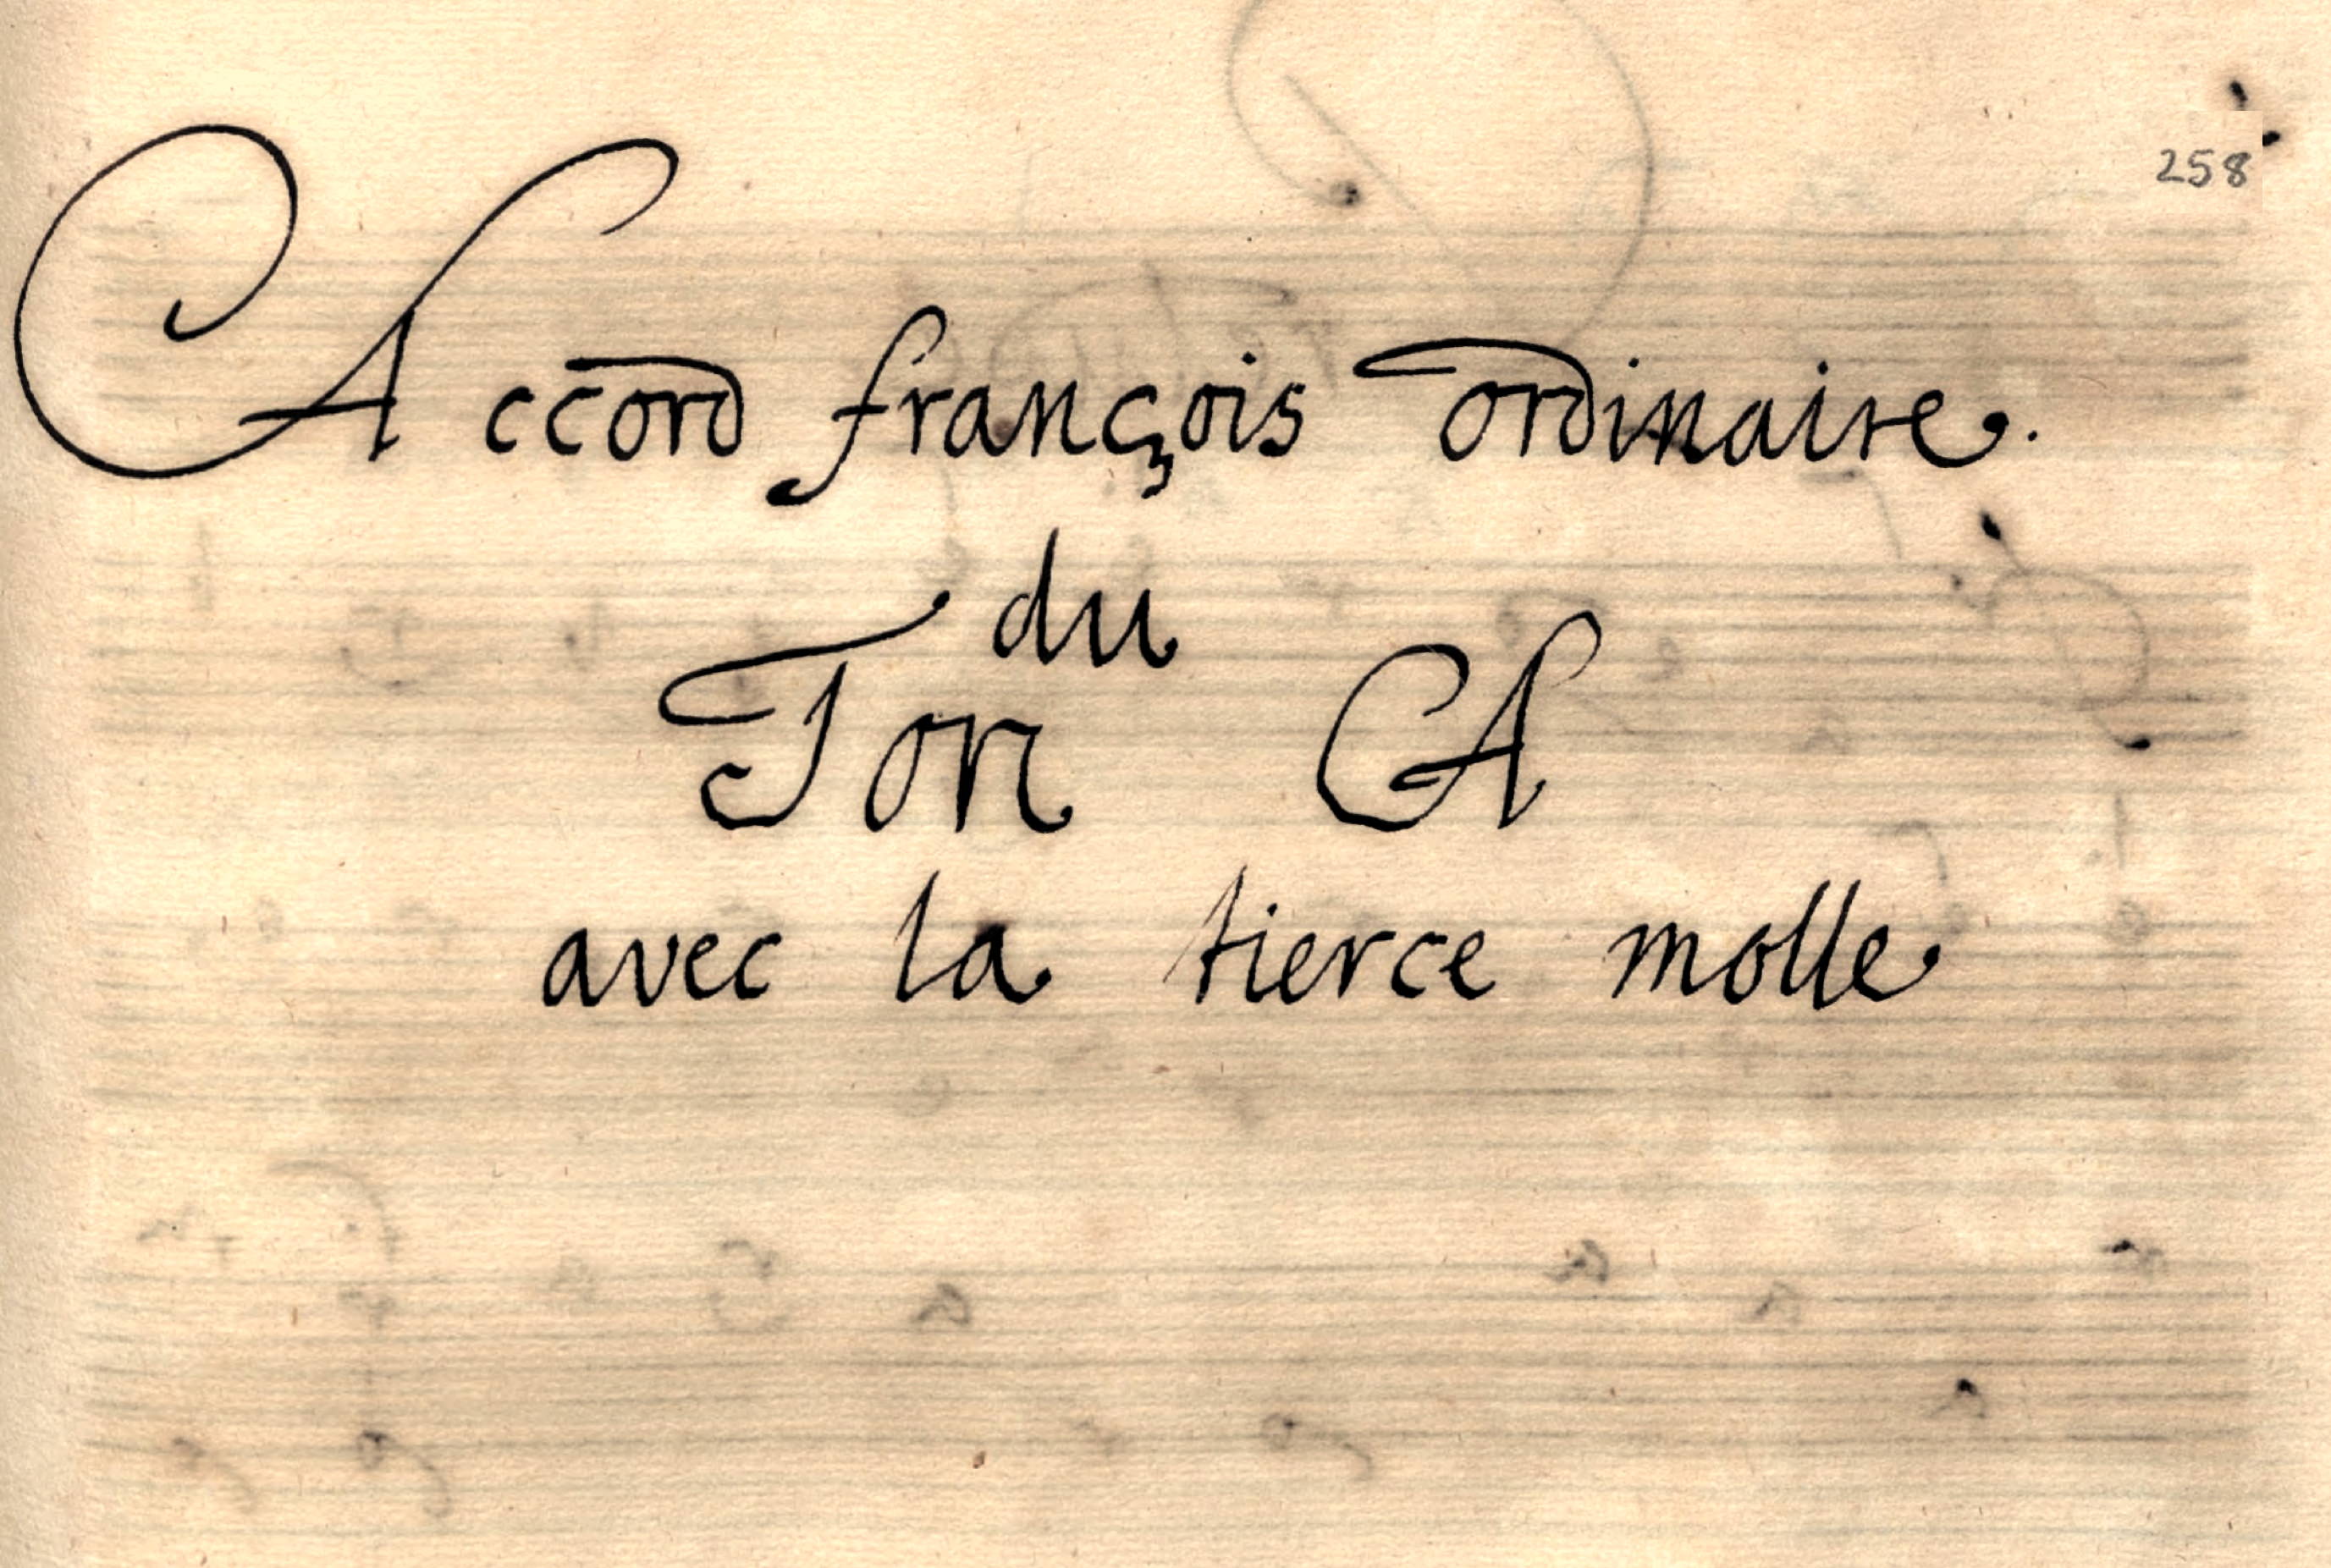 258
Accord françois ordinaire.
du
Ton A
avec la tierce molle